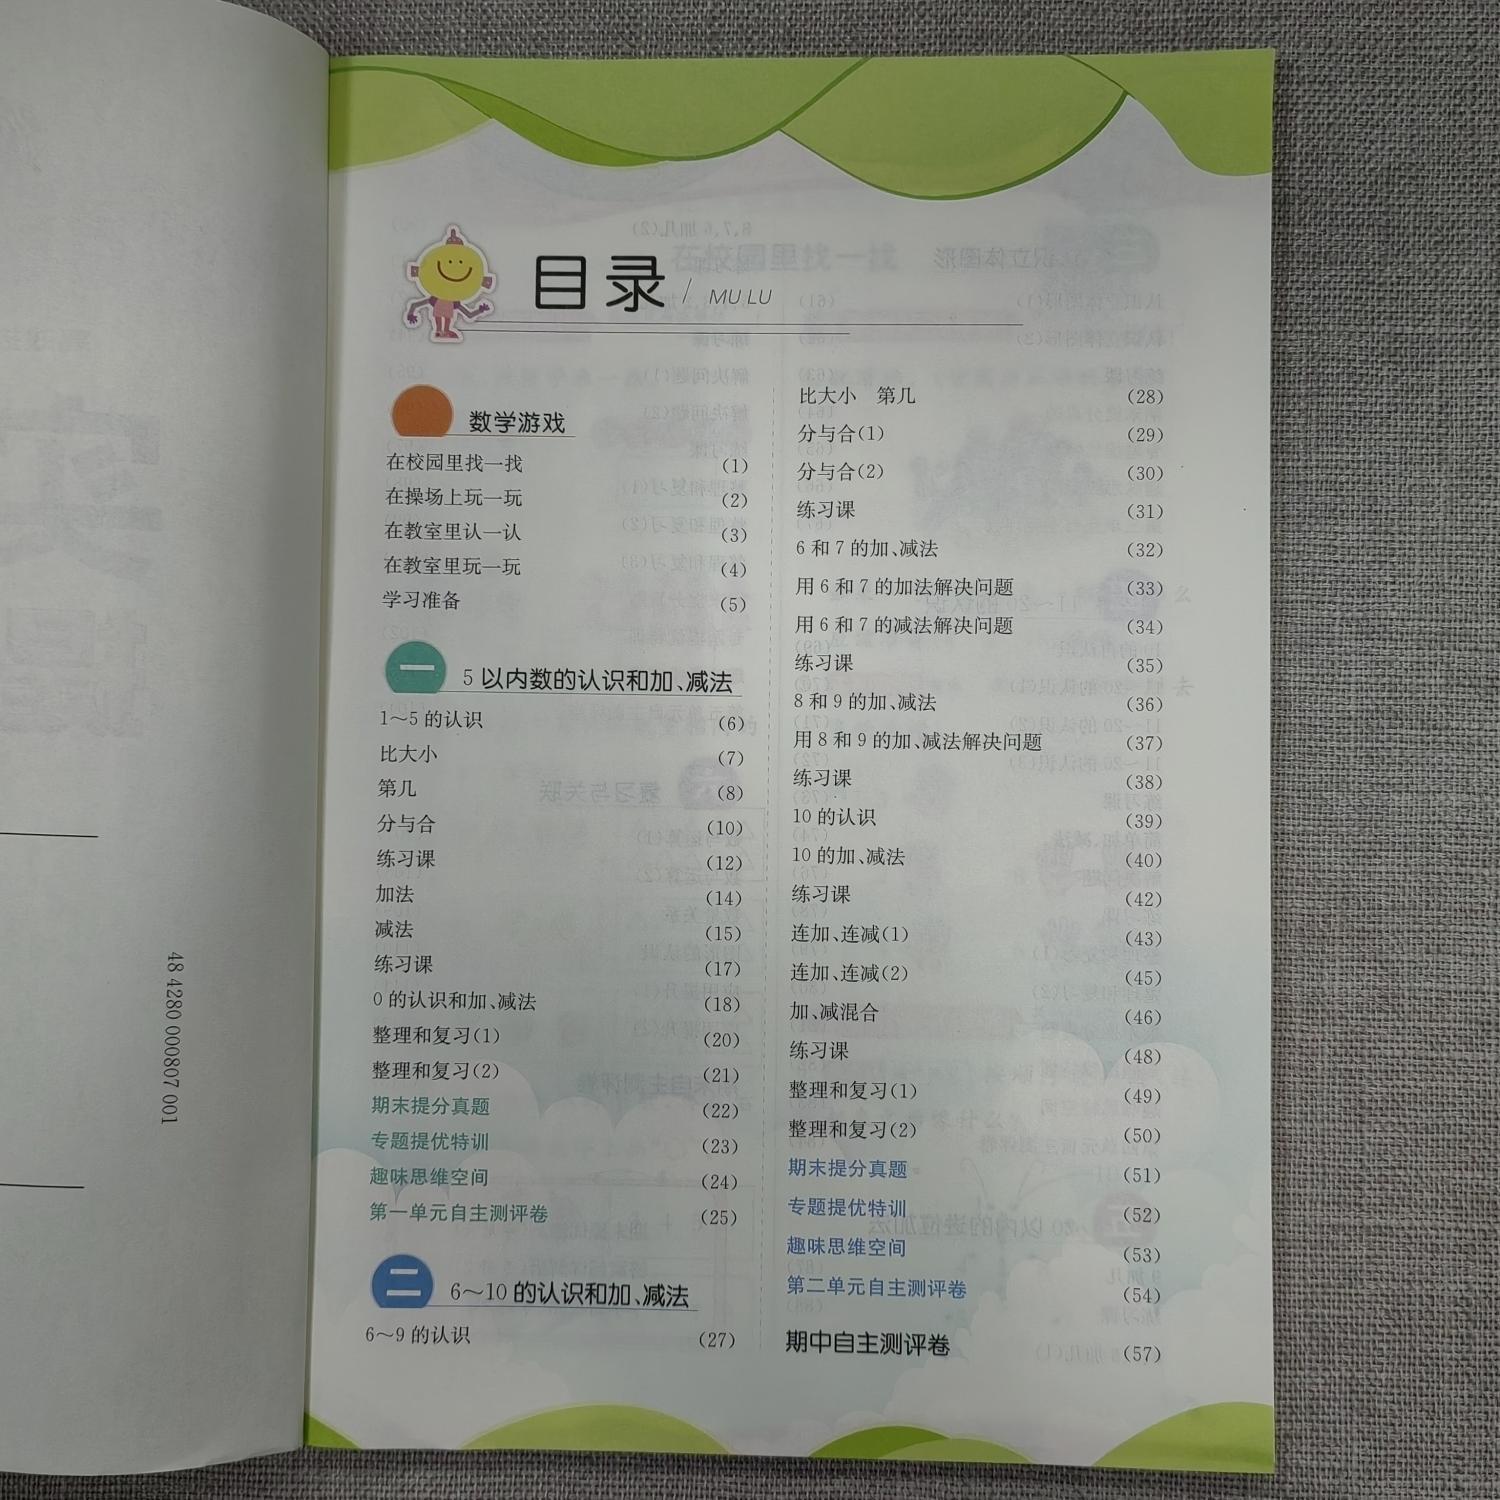 目录 / MU LU
数学游戏
在校园里找一找 (1)
在操场上玩一玩 (2)
在教室里认一认 (3)
在教室里玩一玩 (4)
学习准备 (5)
一 5 以内数的认识和加、减法
1～5 的认识 (6)
比大小 (7)
第几 (8)
分与合 (10)
练习课 (12)
加法 (14)
减法 (15)
练习课 (17)
0 的认识和加、减法 (18)
整理和复习(1) (20)
整理和复习(2) (21)
期末提分真题 (22)
专题提优特训 (23)
趣味思维空间 (24)
第一单元自主测评卷 (25)
二 6～10 的认识和加、减法
6～9 的认识 (27)
比大小 第几 (28)
分与合(1) (29)
分与合(2) (30)
练习课 (31)
6 和 7 的加、减法 (32)
用 6 和 7 的加法解决问题 (33)
用 6 和 7 的减法解决问题 (34)
练习课 (35)
8 和 9 的加、减法 (36)
用 8 和 9 的加、减法解决问题 (37)
练习课 (38)
10 的认识 (39)
10 的加、减法 (40)
练习课 (42)
连加、连减(1) (43)
连加、连减(2) (45)
加、减混合 (46)
练习课 (48)
整理和复习(1) (49)
整理和复习(2) (50)
期末提分真题 (51)
专题提优特训 (52)
趣味思维空间 (53)
第二单元自主测评卷 (54)
期中自主测评卷 (57)
48 4280 000807 001